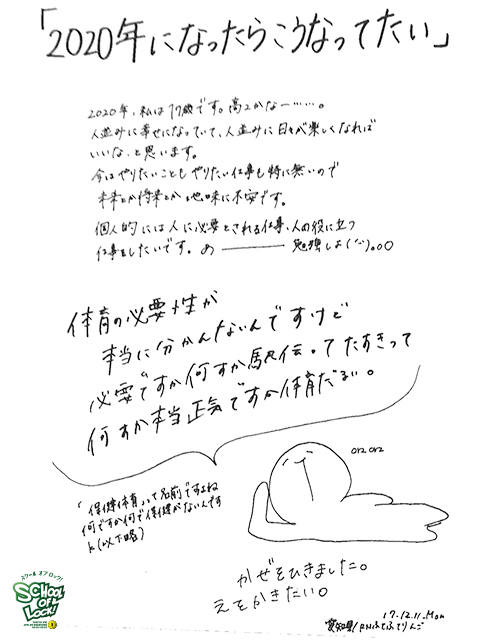 「2020年になったらこうなってたい」
2020年、私は17歳です。高2かなー……。
人並みに幸せになっていて、人並みに日々が楽しくなれば
いいな、と思います。
今はやりたいこともやりたい仕事も特に無いので
未来とか将来とか地味に不安です。
個人的には人に必要とされる仕事、人の役に立つ
仕事をしたいです。あ──── 勉強しよ
体育の必要性が
本当に分かんないんですけど
必要ですか何すか駅伝ってたすきって
何すか本当正気ですか体育だるい。
「保健体育」って名前ですよね
何ですか何で保健がないんです
k(以下略)
orz orz
かぜをひきました。
えをかきたい。
17.12.11.Mon
愛知県/RNふてふてりんご
スクール オブ ロック!
SCHOOL OF LOCK!